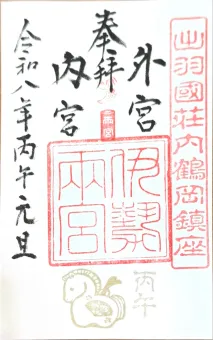 出羽國荘内鶴岡鎮座
外宮
奉拝
内宮
伊勢両宮
令和八年丙午元旦
丙午